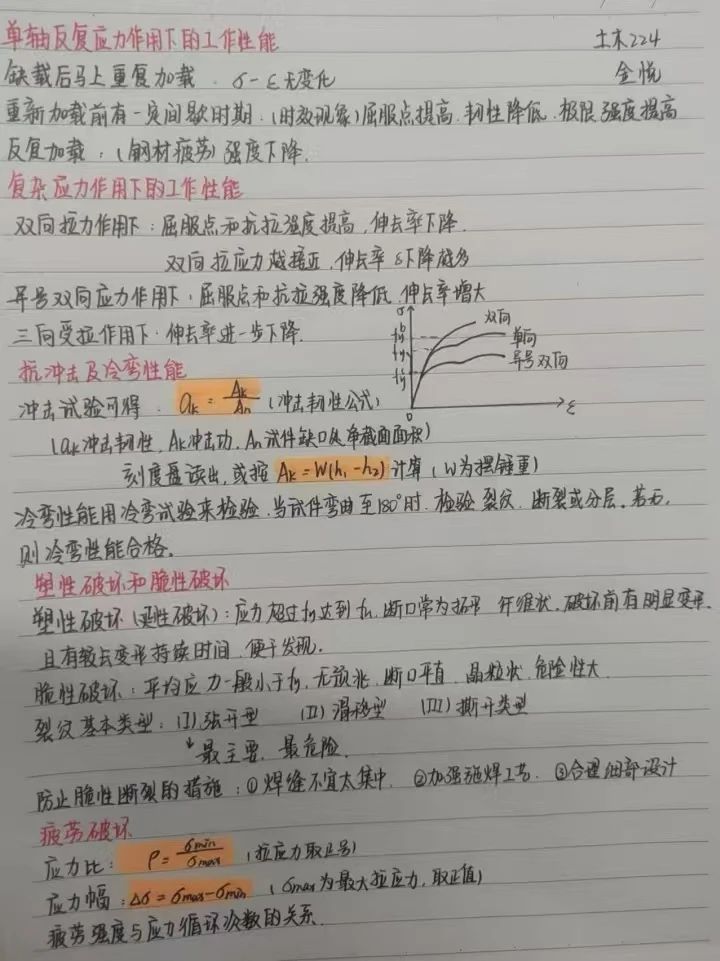 单轴反复应力作用下的工作性能 土木224
缺载后马上重复加载. σ-ε无变化 金悦
重新加载前有一定间歇时期.(时效现象)屈服点提高.韧性降低.极限强度提高
反复加载:(钢材疲劳)强度下降.
复杂应力作用下的工作性能
双向拉力作用下:屈服点和抗拉强度提高,伸长率下降.
双向拉应力越接近,伸长率δ下降越多
异号双向应力作用下:屈服点和抗拉强度降低 伸长率增大
三向受拉作用下.伸长率进一步下降.
σ
双向
单向
异号双向
fy
fy
0
ε
抗冲击及冷弯性能
冲击试验可得. ak = Ak/An (冲击韧性公式)
(ak冲击韧性, Ak冲击功. An试件缺口处净截面面积)
刻度盘读出,或按 Ak=W(h1-h2)计算(W为摆锤重)
冷弯性能用冷弯试验来检验.当试件弯曲至180°时.检验裂纹.断裂或分层。若无,
则冷弯性能合格。
塑性破坏和脆性破坏
塑性破坏(延性破坏):应力超过fy达到fu.断口常为杯形 纤维状.破坏前有明显变形.
且有较长变形持续时间.便于发现.
脆性破坏:平均应力一般小于fy.无预兆.断口平直.晶粒状.危险性大
裂纹基本类型:(I)张开型 (II)滑移型 (III)撕开类型
最主要.最危险.
防止脆性断裂的措施:①焊缝不宜太集中. ②加强施焊工艺. ③合理细部设计
疲劳破坏
应力比: ρ=σmin/σmax (拉应力取正号)
应力幅:Δσ=σmax-σmin (σmax为最大拉应力,取正值)
疲劳强度与应力循环次数的关系.